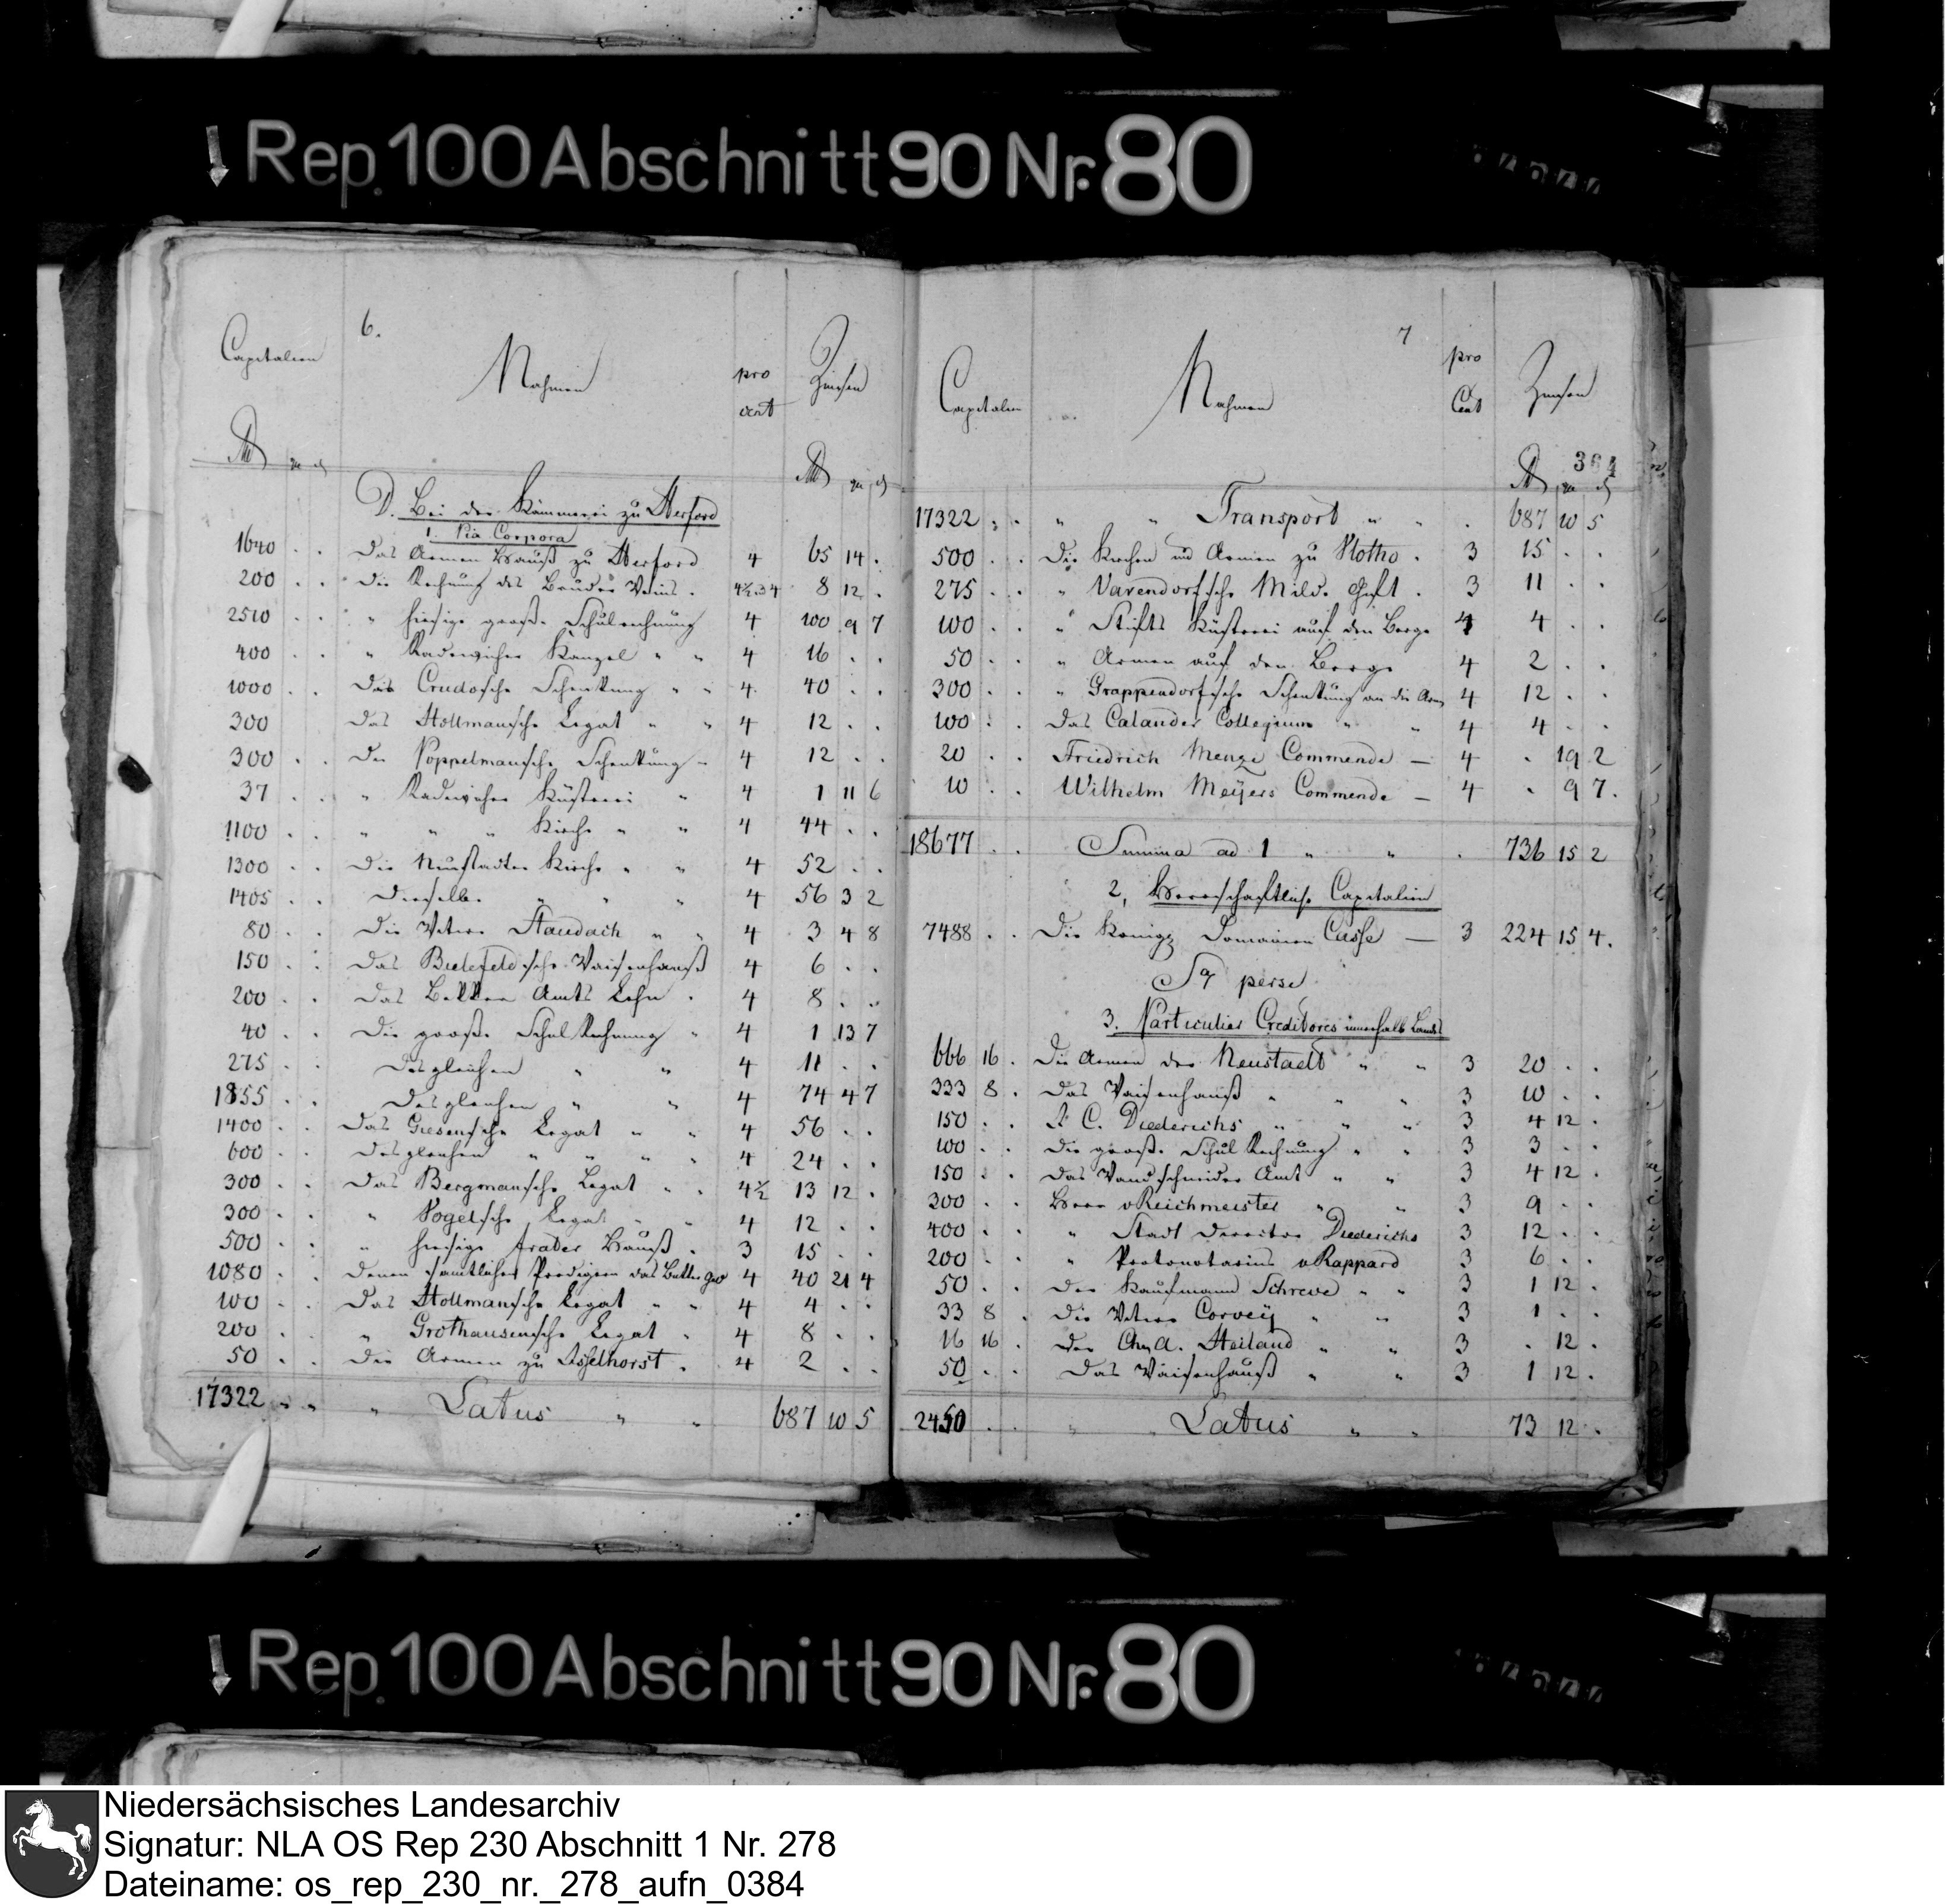 Rep. 100 Abschnitt 90 Nr. 80
6.
Capitalien Nahmen pro cent Zinsen
D. Bei der Kämmerei zu Herford
1. Pia Corpora
1640 . . Das Armen Hauß zu Herford 4 65 14 .
200 . . Die Rechnung des 4½.3 4 8 12 .
2510 . . " hiesige große Schulrechnung 4 100 9 7
400 . . " Radewicher Kanzel " " 4 16 . .
1000 . . Die Crudosche Schenkung " " 4 40 . .
300 Das Hollmansche Legat " " 4 12 . .
300 . . Die Poppelmansche Schenkung - 4 12 . .
37 . . " Radewicher Küsterei " 4 1 11 6
1100 . . " " " Kirche " " 4 44 . .
1300 . . Die Neustadter Kirche " " 4 52 . .
1405 . . Dieselbe " " " 4 56 3 2
80 . . Die Witwe Haudaich " " 4 3 4 8
150 . . Das Bielefeldsche Waisenhauß 4 6 . .
200 . . Das Bekker Amts Lehn . 4 8 . .
40 . . Die große Schul Rechnung " 4 1 13 7
275 . . Desgleichen " " 4 11 . .
1855 . . Desgleichen " " 4 74 4 7
1400 . . Das Giesensche Legat " " 4 56 . .
600 . . Desgleichen " " " " 4 24 . .
300 . . Das Bergmansche Legat " " 4½ 13 12 .
300 . . " Vogelsche Legat " " 4 12 . .
500 . . " hiesige Hauß . 3 15 . .
1080 . . Denen samtlichen Predigern das 4 40 21 4
100 . . Das Hollmansche Legat " " 4 4 . .
200 . . " Grothausensche Legat " 4 8 . .
50 . . Die Armen zu Isselhorst . 4 2 . .
17322 " " " Latus " " 687 10 5
7
Capitalien Nahmen pro Cent Zinsen
364
17322 " . " " Transport " " . 687 10 5
500 . . Die Kirchen und Armen zu Vlotho . 3 15 . .
275 . . " Varendorfsche Milde Gift . 3 11 . .
100 . . " Stifts Küsterei auf den Berge 4 4 . .
50 . . " Armen auf den Berge 4 2 . .
300 . . " Grappendorfsche Schenkung an die Arm 4 12 . .
100 . . Das Calander Collegium " " 4 4 . .
20 . . Friedrich Menze Commende — 4 . 19 2
10 . . Wilhelm Meÿers Commende — 4 . 9 7.
18677 . . Summa ad 1 " " . 736 15 2
2, Herrschaftliche Capitalien
7488 . . Die Königl Domainen Casse — 3 224 15 4.
S perse
3. Particulier Creditores innerhalb Landes
666 16 . Die Armen der Neustadt " " 3 20 . .
333 8 . Das Waisenhauß " " " 3 10 . .
150 . . C. Diederichs " " " 3 4 12 .
100 . . Die große Schul Rechnung " " 3 3 . .
150 . . Das Wandschneider Amt " " 3 4 12 .
300 . . Herr v Reichmeister " " 3 9 . .
400 . . " Stadt Director Diederichs 3 12 . .
200 . . " Protonotarius v Rappard 3 6 . .
50 . . Der Kaufmann Schreve " " 3 1 12 .
33 8 . Die Witwe Corveÿ " " 3 1 . .
16 16 . Der Heiland " " 3 . 12 .
50 . . Das Waisenhauß " " 3 1 12 .
2450 . . " " Latus " " 73 12 .
Rep. 100 Abschnitt 90 Nr. 80
Niedersächsisches Landesarchiv
Signatur: NLA OS Rep 230 Abschnitt 1 Nr. 278
Dateiname: os_rep_230_nr._278_aufn_0384